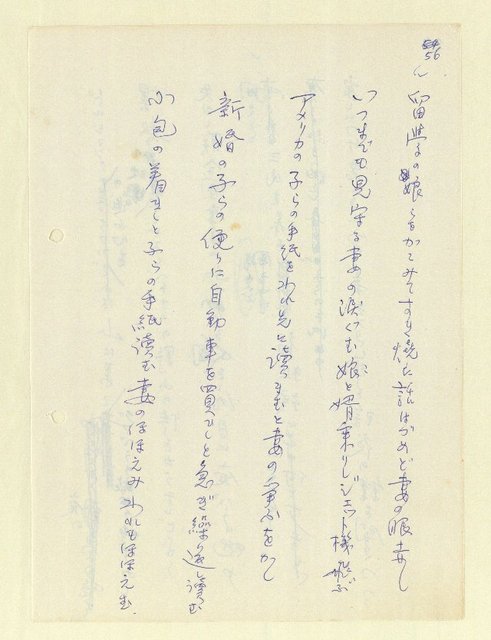 56
留学の娘らをかこみてすき焼に話はずめど妻の眼赤し
いつまでも見守る妻の涙ぐむ娘と婿乗りしジェット機飛ぶ
アメリカの子らの手紙をわれ先に読まむと妻の争ふをかし
新婚の子らの便りに自動車を買ひしと急ぎ繰り返し讀む
小包の着きしと子らの手紙讀む妻のほほえみわれもほほえむ